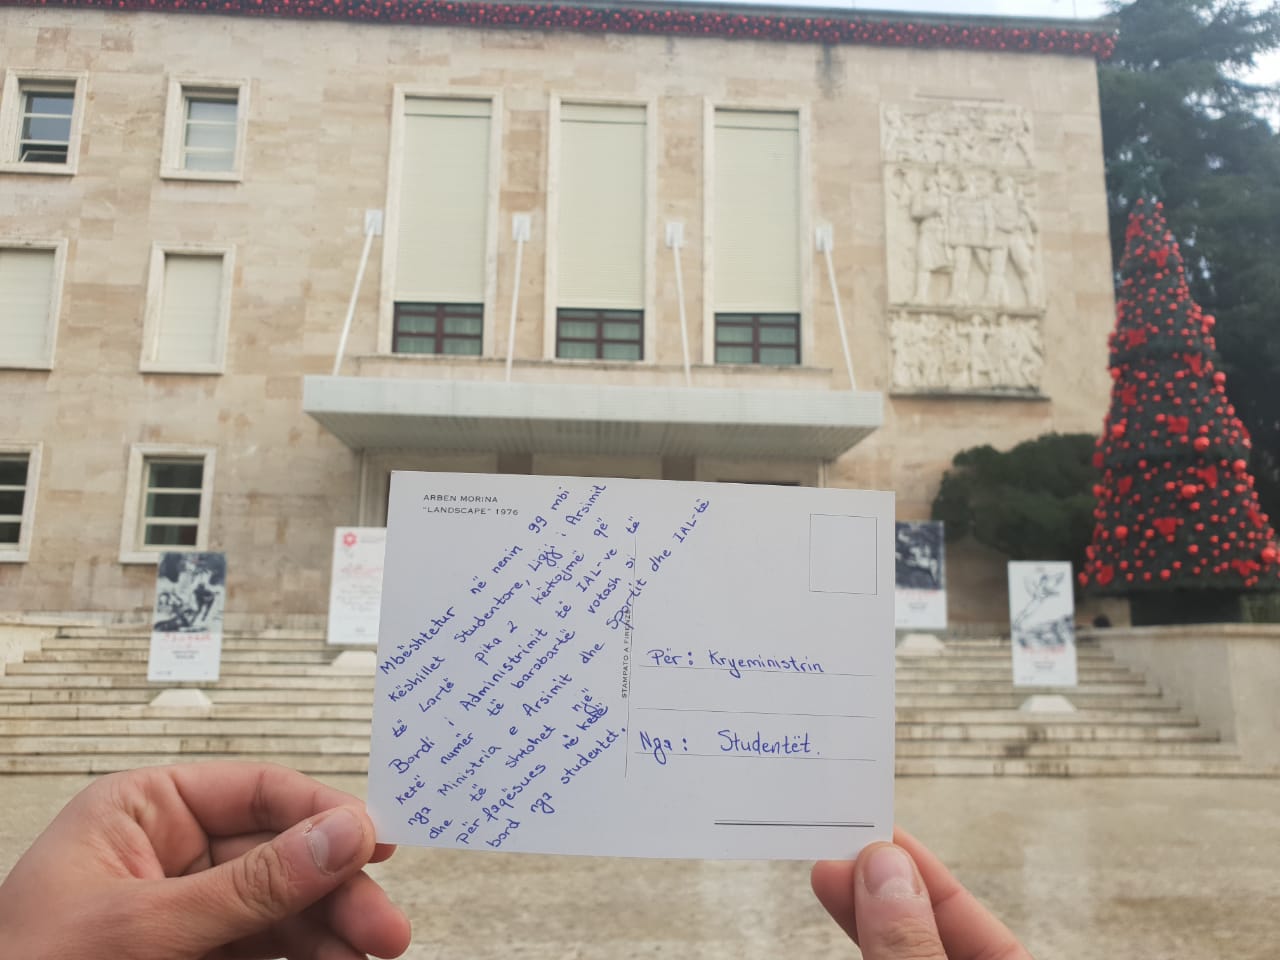 ARBEN MORINA
"LANDSCAPE" 1976
Mbështetur në nenin 99 mbi
këshillet studentore, Ligji i Arsimit
të Lartë pika 2 kërkojmë që
Bordi i Administrimit të IAL-ve të
ketë numër të barabartë votash si
nga Ministria e Arsimit dhe Sportit dhe IAL-të
dhe të shtohet një
përfaqësues në këtë
bord nga studentët.
STAMPATO A FIRENZE
Për: Kryeministrin
Nga: Studentët.